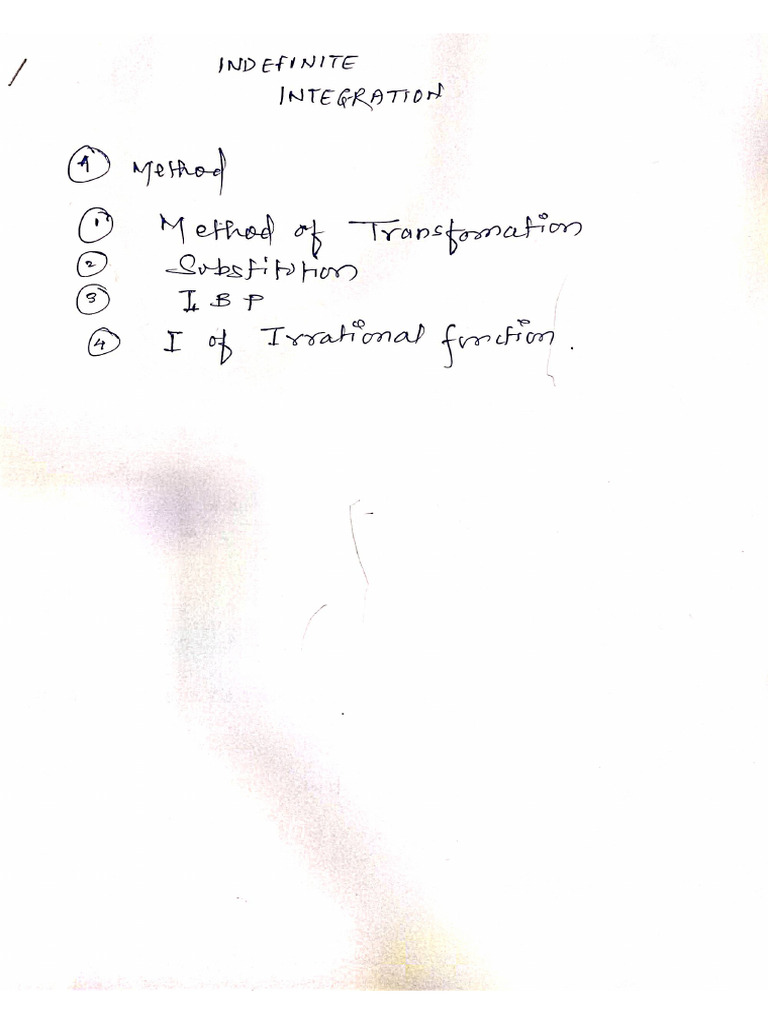 INDEFINITE
INTEGRATION
A Method
1 Method of Transfomation
2 Substitution
3 I B P
4 I of Irrational function.